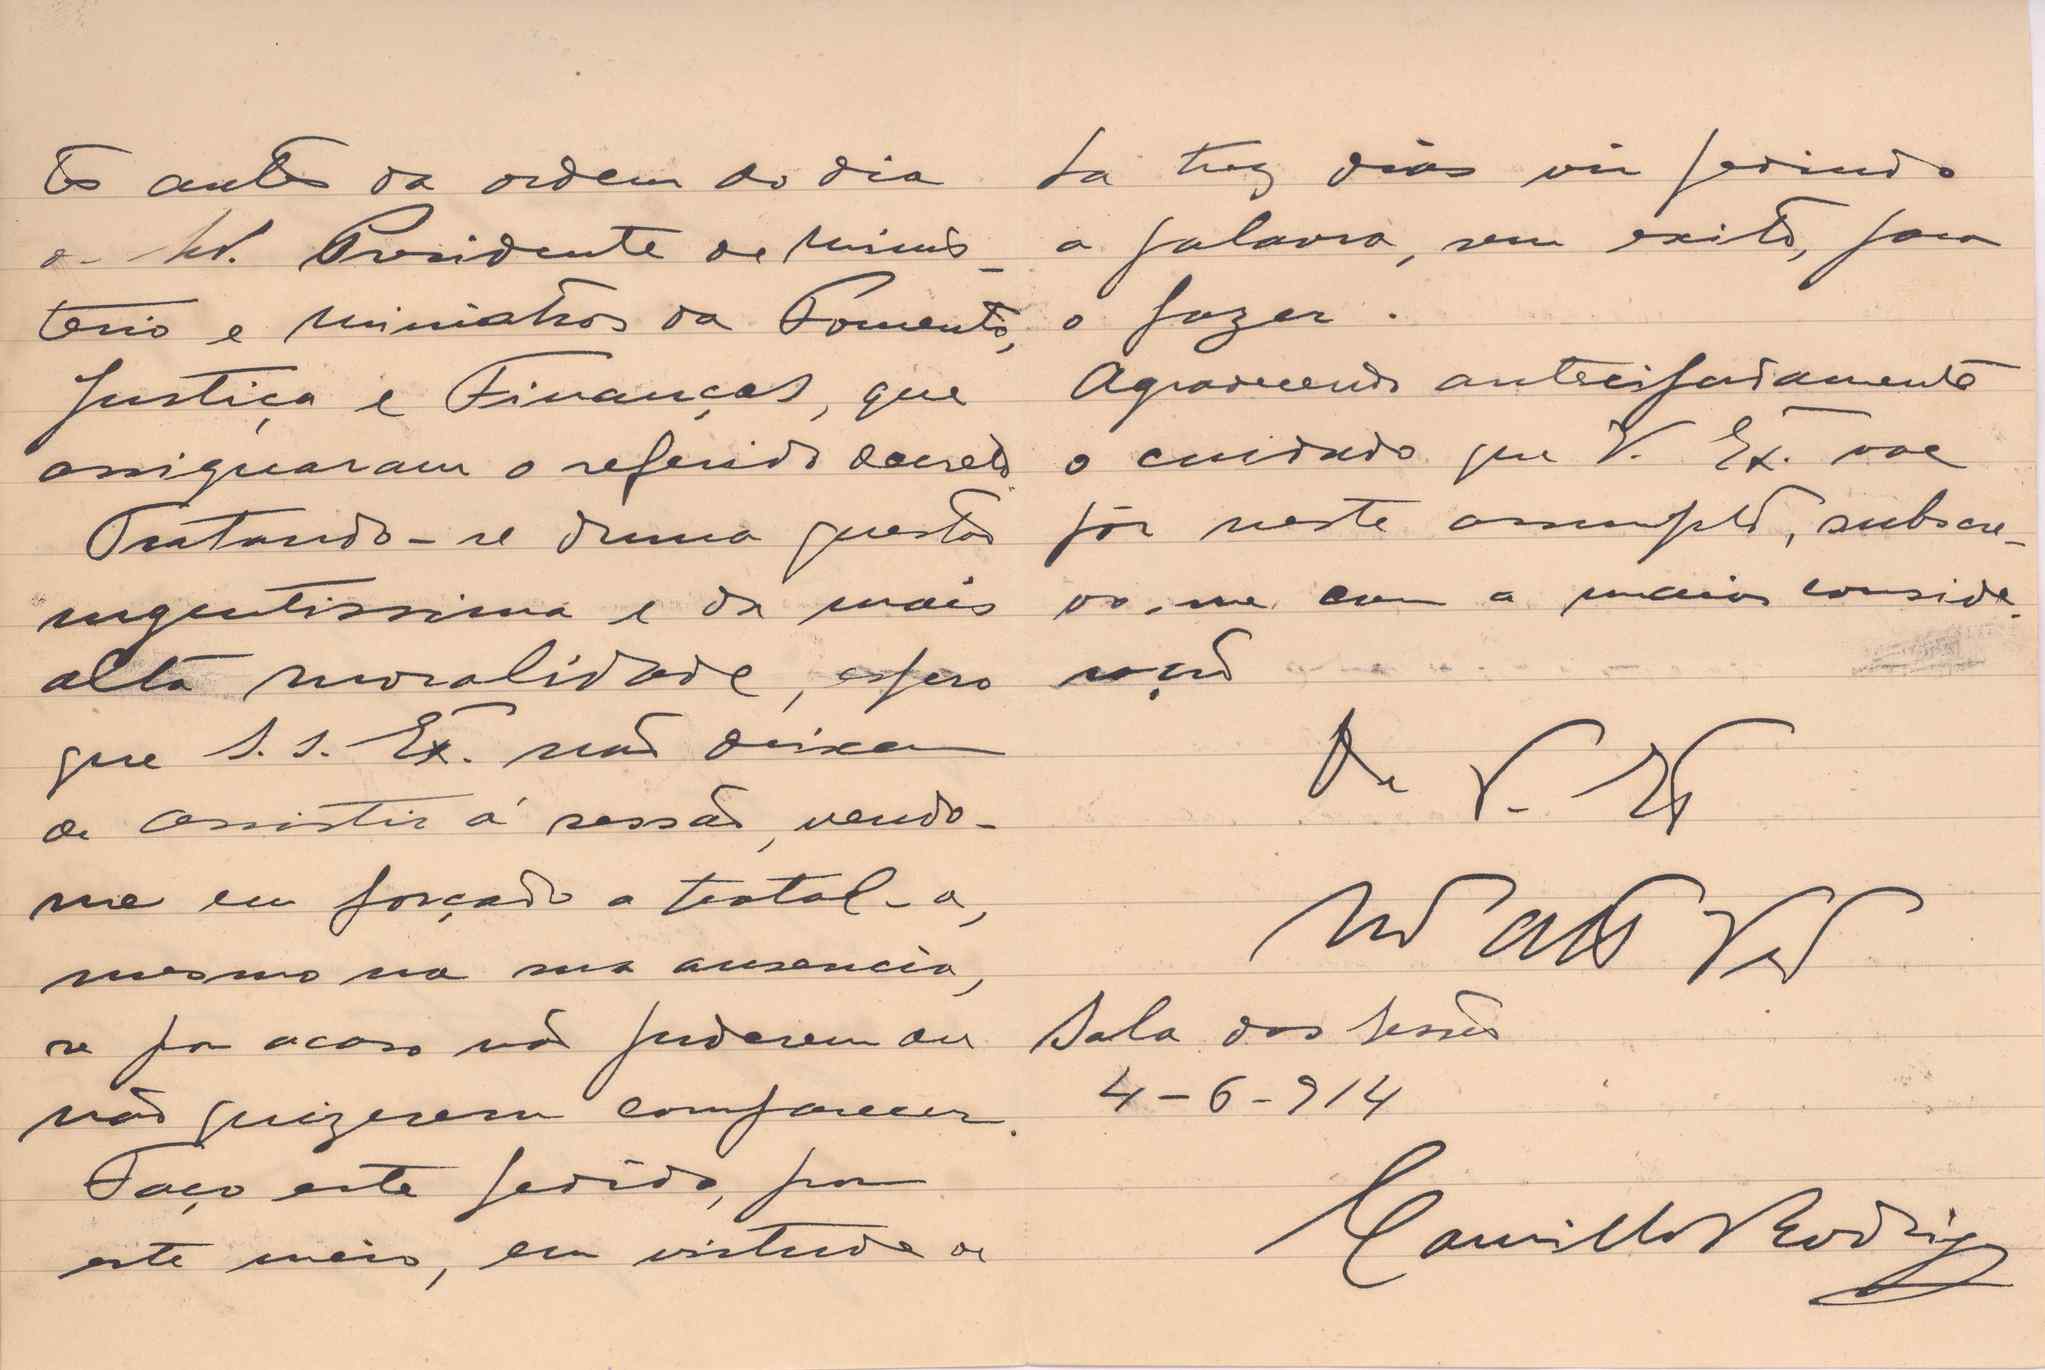 tes antes da ordem do dia
o Sr. Presidente de Minis-
terio e ministros da Fomento,
Justiça e Finanças, que
assignaram o referido decreto.
Tratando-se duma questão
urgentissima e da mais
alta moralidade, espero
que S. S. Ex. não deixem
de assistir á sessão, vendo-
me eu forçado a tratal-a,
mesmo na sua ausencia,
se por acaso não puderem ou
não quizerem comparecer.
Faço este pedido, por
este meio, em virtude de
ha trez dias vir pedindo
a palavra, sem exito, para
o fazer.
Agradecendo antecipadamente
o cuidado que V. Ex. vae
pôr neste assumpto, subscre-
vo-me com a maior conside-
ração
De V. Ex
Mto Atto Ven
Sala das Sessões
4-6-914
Camillo Rodrigues